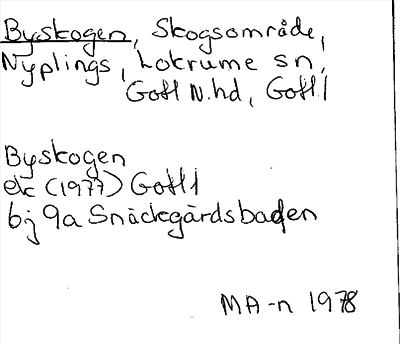 Byskogen, Skogsområde,
Nyplings, Lokrume sn,
Gotl N.hd, Gotl.l
Byskogen
ek (1977) Gotl l
6J 9a Snäckgärdsbaden
MA-n 1978